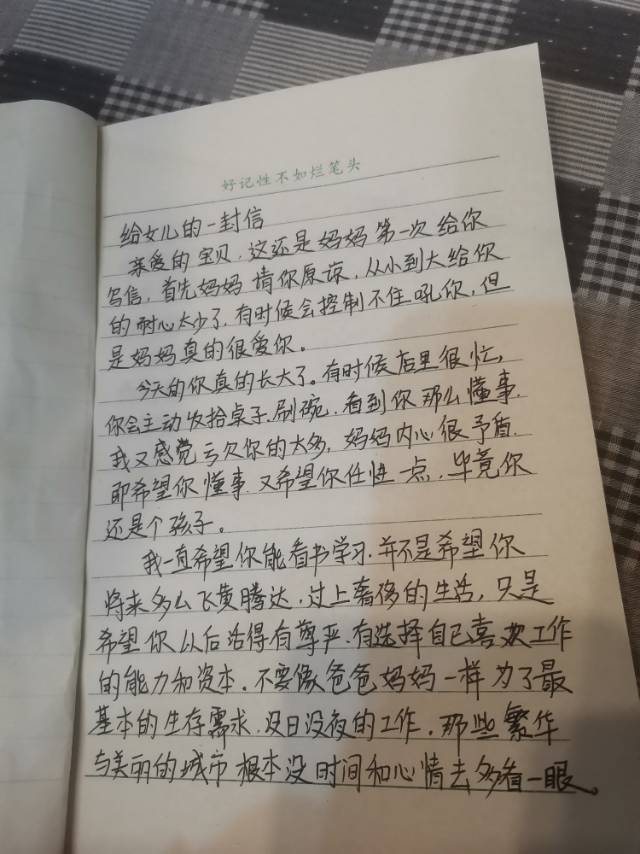 好记性不如烂笔头
给女儿的一封信
亲爱的宝贝，这还是妈妈第一次给你
写信，首先妈妈请你原谅，从小到大给你
的耐心太少了，有时候会控制不住吼你，但
是妈妈真的很爱你。
今天的你真的长大了。有时候店里很忙，
你会主动收拾桌子.刷碗，看到你那么懂事.
我又感觉亏欠你的太多，妈妈内心很矛盾.
即希望你懂事.又希望你任性一点，毕竟你
还是个孩子。
我一直希望你能看书学习.并不是希望你
将来多么飞黄腾达，过上奢侈的生活，只是
希望你以后活得有尊严.有选择自己喜欢工作
的能力和资本.不要像爸爸妈妈一样为了最
基本的生存需求，没日没夜的工作.那些繁华
与美丽的城市根本没时间和心情去多看一眼、